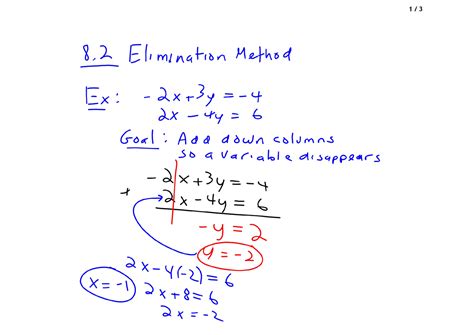 1 / 3
8.2 Elimination Method
Ex: -2x+3y=-4
2x-4y=6
Goal: Add down columns
so a variable disappears
-2x+3y=-4
+ 2x-4y=6
-y=2
y=-2
2x-4(-2)=6
x=-1 2x+8=6
2x=-2